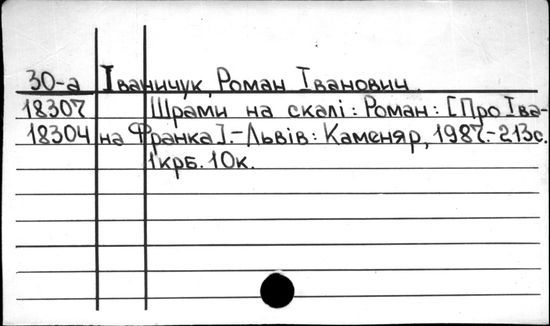 30-а Іваничук, Роман Іванович.
18307 Шрами на скалі: Роман: [Про Іва-
18304 на Франка].-Львів: Каменяр, 1987.-213с.
1крб. 10к.